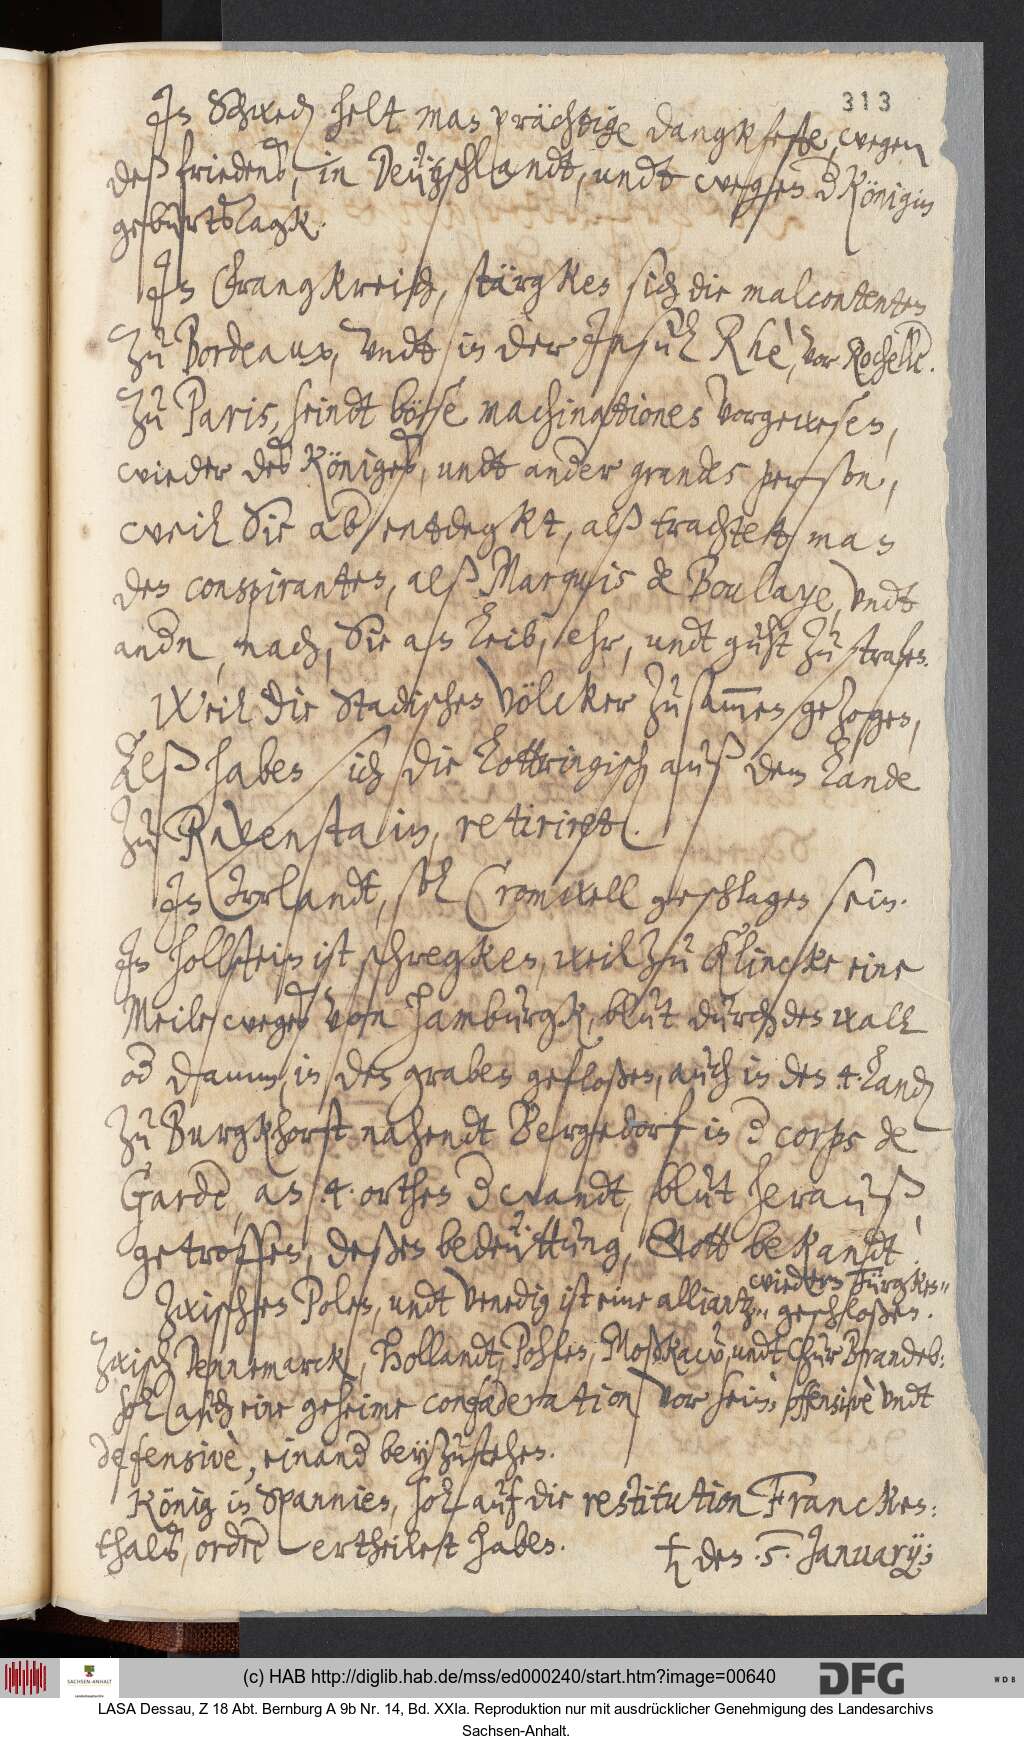 313
In Schweden helt man prächtige dangkfeste, wegen
deß friedens, in Deützschlandt, undt wegen der Königin
geburtstagk.
In Frangkreich, stärgken sich die malcontenten
zu Bordeaux, undt in der Insul Rhè, vor Rochelle.
Zu Paris, seindt böse machinationes vorgewesen,
wieder des Königes, undt ander grandes person,
weil Sie aber entdegkt, alß trachtett man
den conspirantes, alß Marquis de Boulaye, undt
andern, nach, Sie an leib, ehr, undt guht zu strafen.
Weil die Stadischen völcker zusammen gezogen,
Alß haben sich die Lottringisch auß dem Lande
zu Ravenstain, retiriret.
In Irrlandt, sol Cromwell geschlagen sein.
In Hollstein ist schregken, weil zu Klincke eine
Meile weges von Hamburgk, blut durch den wall
oder damm, in den graben gefloßen, auch in den 4. Landen
zu Burgkhorst nahendt Bergedorf in der corps de
Garde, an 4. orthen der wandt, blut herauß,
getroffen, deßen bedeuttung, Gott bekandt
wiedern Türgken"
Zwischen Polen, undt Venedig ist eine alliantz" geschloßen.
Zwischen Dennemarck, Hollandt, Pohlen, Moßkaw, undt ChurBrandeb:
sol auch eine geheime confæderation vor sein, offensivè undt
defensivè, einander beyzustehen.
König in Spannien, sol auf die restitution Francken:
thals, order ertheilet haben.
♄ den .5. January;
(c) HAB http://diglib.hab.de/mss/ed000240/start.htm?image=00640
SACHSEN-ANHALT
DFG
WDB
LASA Dessau, Z 18 Abt. Bernburg A 9b Nr. 14, Bd. XXIa. Reproduktion nur mit ausdrücklicher Genehmigung des Landesarchivs
Sachsen-Anhalt.